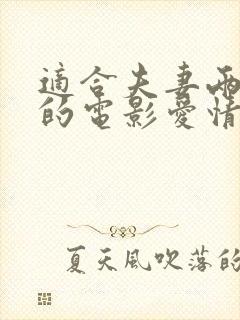 適合夫妻兩
的電影愛情
夏天風吹落的